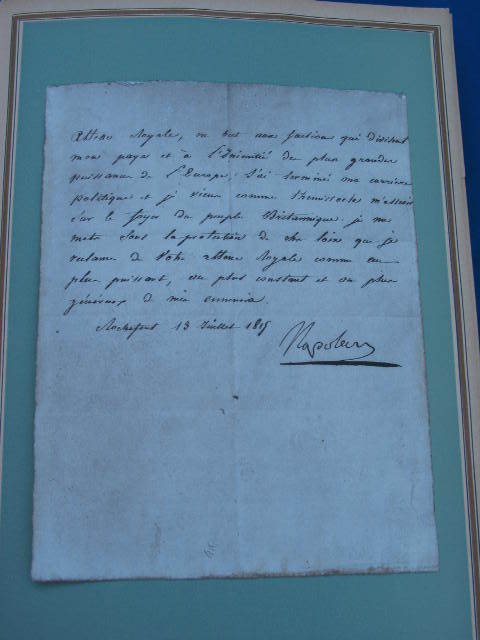 Altesse Royale, en but aux factions qui divisent
mons pays et à l'Inimitié des plus grandes
puissances de l'Europe; J'ai terminé ma carrière
politique et je viens comme themistocles m'asseoir
sur le foyer du peuple Britannique. je me
mets sous la protection de ses lois que je
reclame de Votre Altesse Royale comme au
plus puissant, au plus constant et au plus
généreux de mes ennemis.
Rochefort 13 Juillet 1815
Napoleon